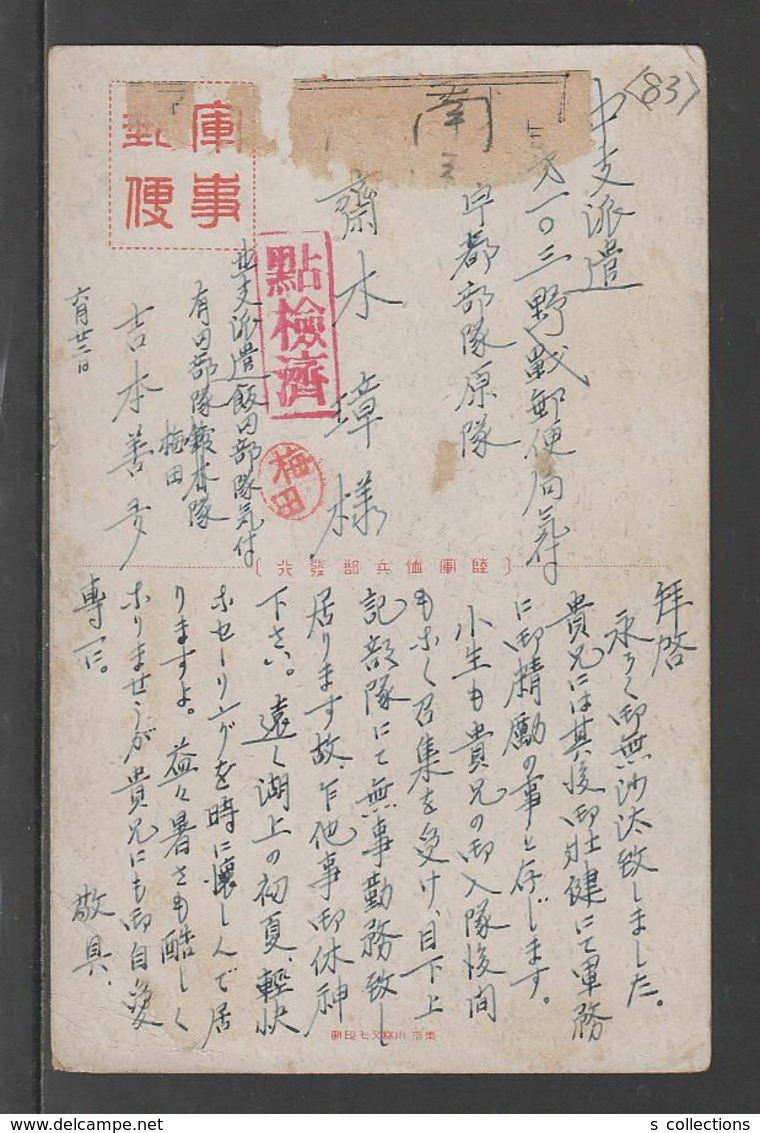 <83>
軍事
郵便
南
中支派遣
一〇三野戦郵便局気付
宇都部隊原隊
齋木璋様
點檢濟
梅田
北支派遣飯田部隊気付
有田部隊
梅田
吉本善
六月廿二日
陸軍恤兵部發行
拝啓
永らく御無沙汰致しました。
貴兄には其後御壮健にて軍務
に御精励の事と存じます。
小生も貴兄の御入隊後間
もなく召集を受け、目下上
記部隊にて無事勤務致し
居ります故、乍他事御休神
下さい。遠く湖上の初夏、軽快
なセーリングを時に懐しんで居
りますよ。益々暑さも酷しく
なりませうが貴兄にも御自愛
専一に。
敬具、
s collections
www.delcampe.net